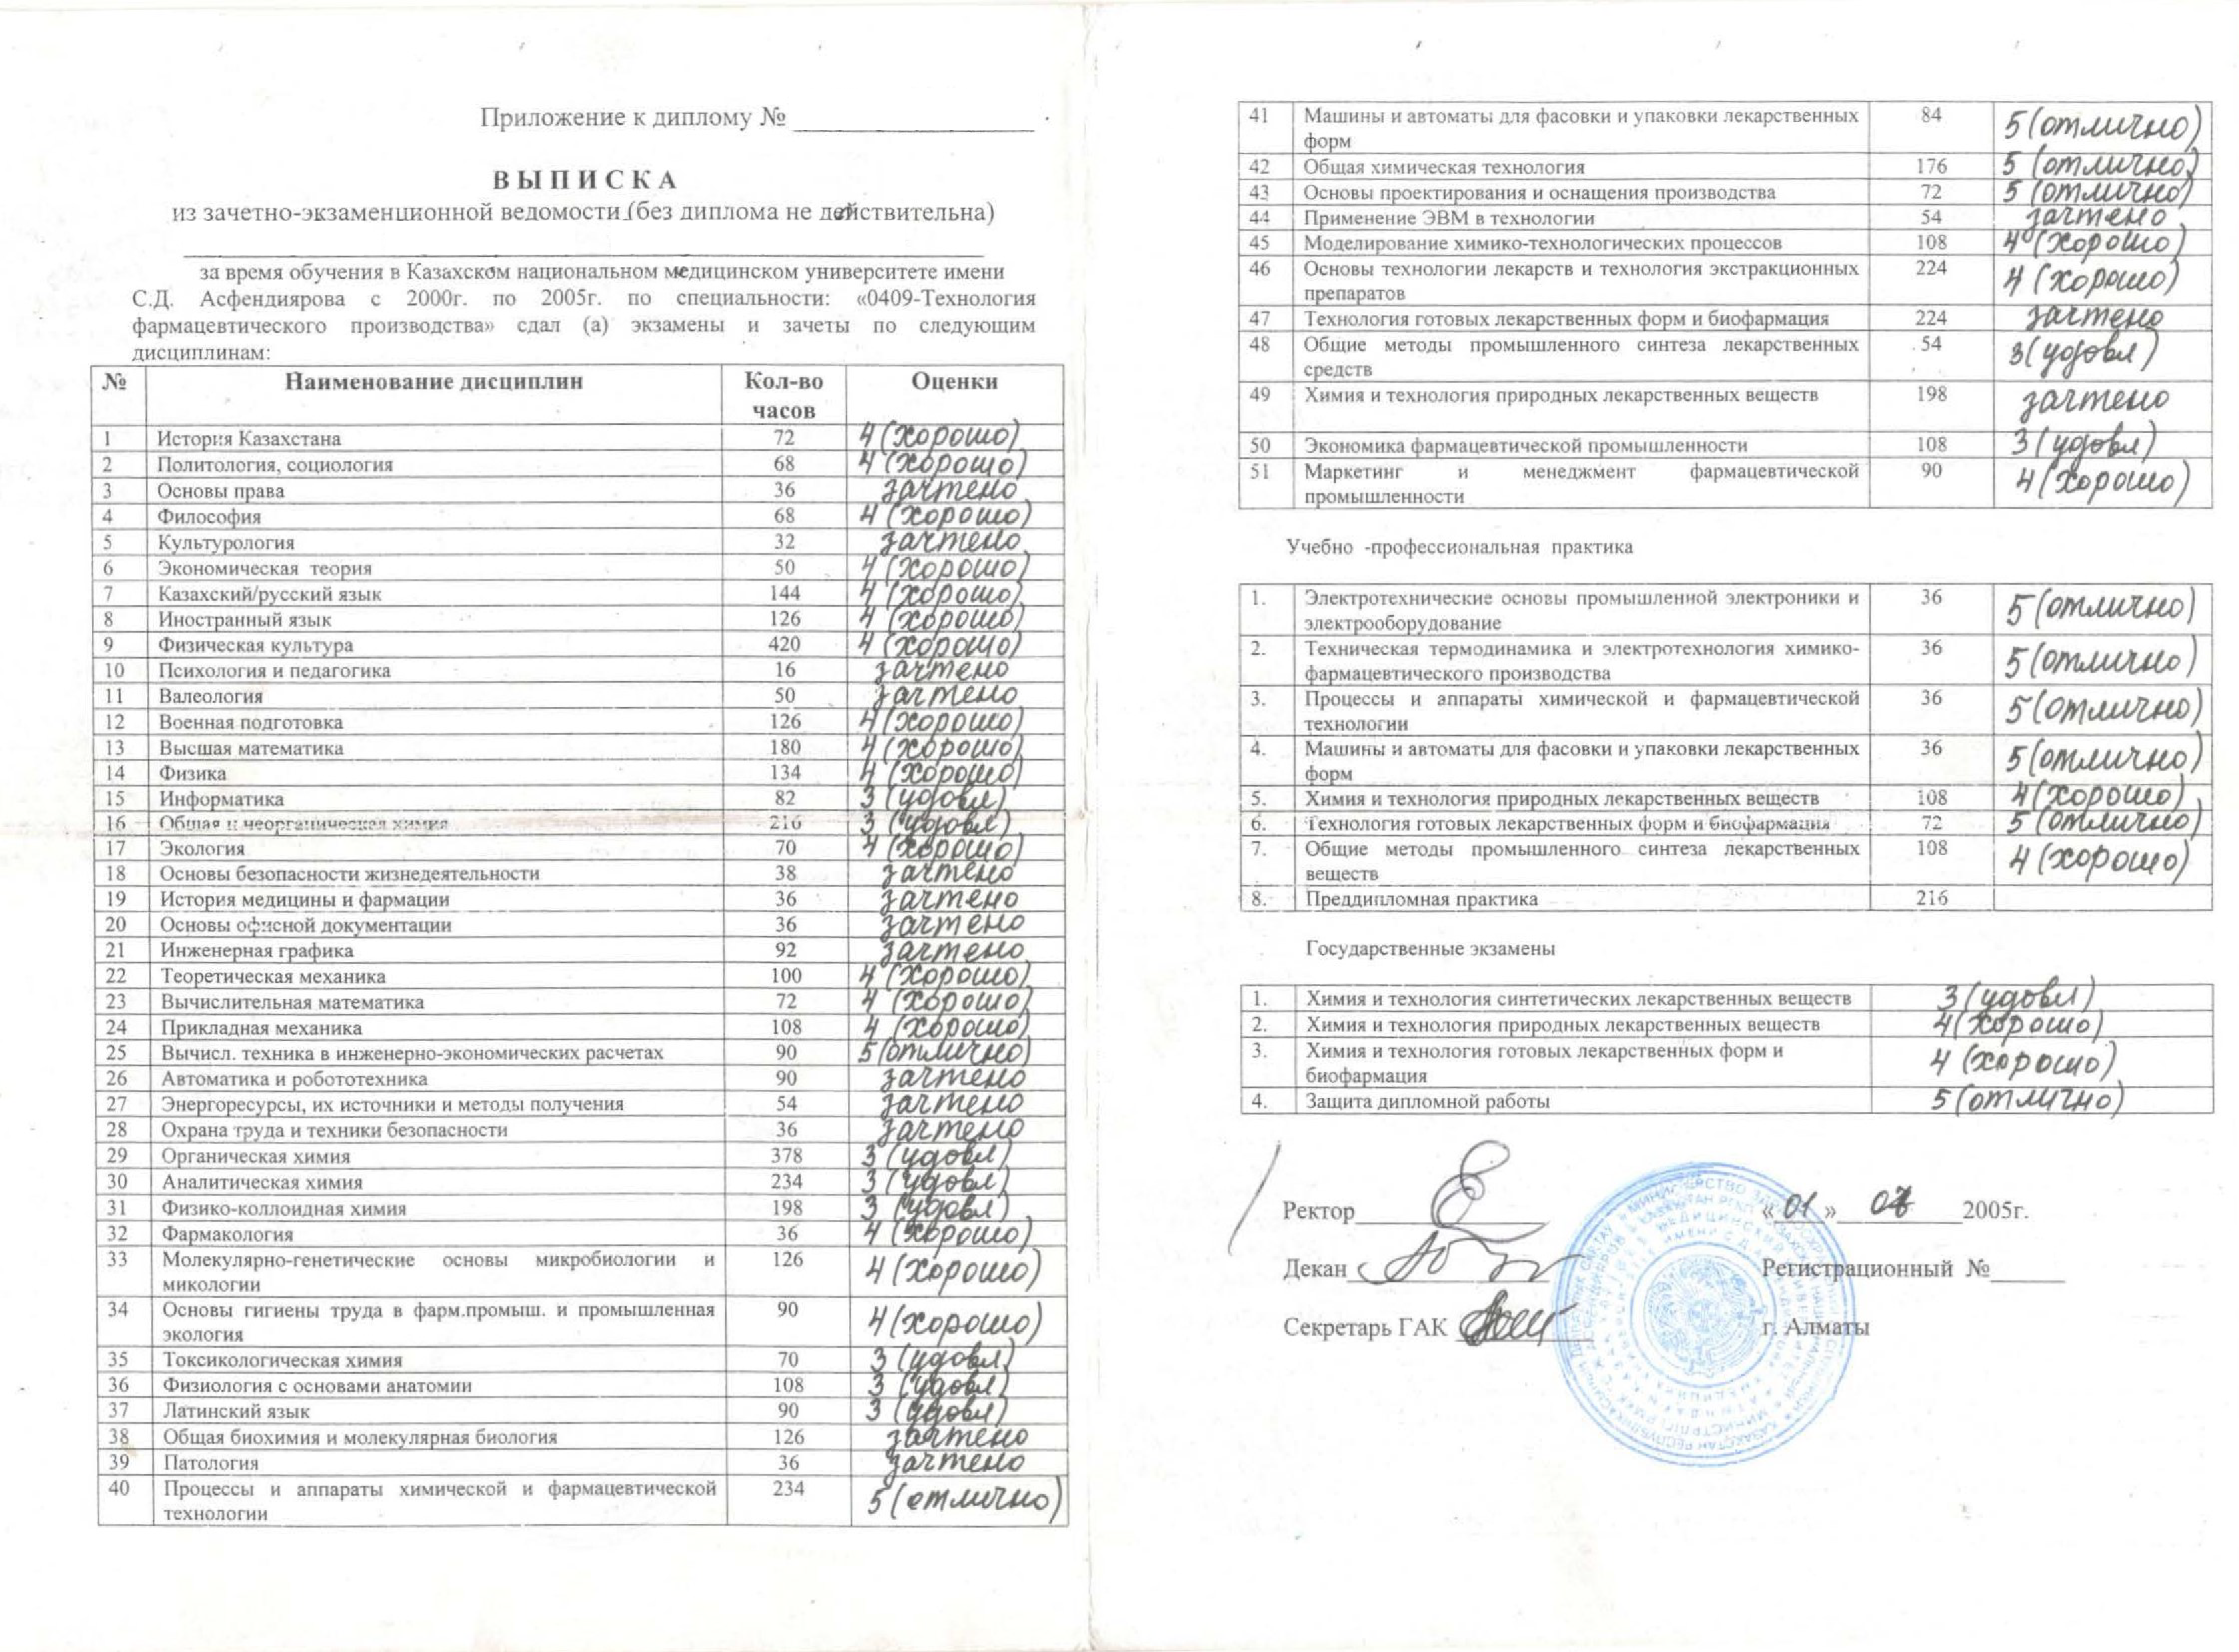 Приложение к диплому №
ВЫПИСКА
из зачетно-экзаменционной ведомости (без диплома не действительна)
за время обучения в Казахском национальном медицинском университете имени
С.Д. Асфендиярова с 2000г. по 2005г. по специальности: «0409-Технология
фармацевтического производства» сдал (а) экзамены и зачеты по следующим
дисциплинам:
№ Наименование дисциплин Кол-во Оценки
часов
1 История Казахстана 72 4 (хорошо)
2 Политология, социология 68 4 (хорошо)
3 Основы права 36 зачтено
4 Философия 68 4 (хорошо)
5 Культурология 32 зачтено
6 Экономическая теория 50 4 (хорошо)
7 Казахский/русский язык 144 4 (хорошо)
8 Иностранный язык 126 4 (хорошо)
9 Физическая культура 420 4 (хорошо)
10 Психология и педагогика 16 зачтено
11 Валеология 50 зачтено
12 Военная подготовка 126 4 (хорошо)
13 Высшая математика 180 4 (хорошо)
14 Физика 134 4 (хорошо)
15 Информатика 82 3 (удовл)
16 Общая и неорганическая химия 216 3 (удовл)
17 Экология 70 4 (хорошо)
18 Основы безопасности жизнедеятельности 38 зачтено
19 История медицины и фармации 36 зачтено
20 Основы офисной документации 36 зачтено
21 Инженерная графика 92 зачтено
22 Теоретическая механика 100 4 (хорошо)
23 Вычислительная математика 72 4 (хорошо)
24 Прикладная механика 108 4 (хорошо)
25 Вычисл. техника в инженерно-экономических расчетах 90 5 (отлично)
26 Автоматика и робототехника 90 зачтено
27 Энергоресурсы, их источники и методы получения 54 зачтено
28 Охрана труда и техники безопасности 36 зачтено
29 Органическая химия 378 3 (удовл)
30 Аналитическая химия 234 3 (удовл)
31 Физико-коллоидная химия 198 3 (удовл)
32 Фармакология 36 4 (хорошо)
33 Молекулярно-генетические основы микробиологии и 126 4 (хорошо)
микологии
34 Основы гигиены труда в фарм.промыш. и промышленная 90 4 (хорошо)
экология
35 Токсикологическая химия 70 3 (удовл)
36 Физиология с основами анатомии 108 3 (удовл)
37 Латинский язык 90 3 (удовл)
38 Общая биохимия и молекулярная биология 126 зачтено
39 Патология 36 зачтено
40 Процессы и аппараты химической и фармацевтической 234 5 (отлично)
технологии
41 Машины и автоматы для фасовки и упаковки лекарственных 84 5 (отлично)
форм
42 Общая химическая технология 176 5 (отлично)
43 Основы проектирования и оснащения производства 72 5 (отлично)
44 Применение ЭВМ в технологии 54 зачтено
45 Моделирование химико-технологических процессов 108 4 (хорошо)
46 Основы технологии лекарств и технология экстракционных 224 4 (хорошо)
препаратов
47 Технология готовых лекарственных форм и биофармация 224 зачтено
48 Общие методы промышленного синтеза лекарственных 54 3 (удовл)
средств
49 Химия и технология природных лекарственных веществ 198 зачтено
50 Экономика фармацевтической промышленности 108 3 (удовл)
51 Маркетинг и менеджмент фармацевтической 90 4 (хорошо)
промышленности
Учебно -профессиональная практика
1. Электротехнические основы промышленной электроники и 36 5 (отлично)
электрооборудование
2. Техническая термодинамика и электротехнология химико- 36 5 (отлично)
фармацевтического производства
3. Процессы и аппараты химической и фармацевтической 36 5 (отлично)
технологии
4. Машины и автоматы для фасовки и упаковки лекарственных 36 5 (отлично)
форм
5. Химия и технология природных лекарственных веществ 108 4 (хорошо)
6. Технология готовых лекарственных форм и биофармация 72 5 (отлично)
7. Общие методы промышленного синтеза лекарственных 108 4 (хорошо)
веществ
8. Преддипломная практика 216
Государственные экзамены
1. Химия и технология синтетических лекарственных веществ 3 (удовл)
2. Химия и технология природных лекарственных веществ 4 (хорошо)
3. Химия и технология готовых лекарственных форм и 4 (хорошо)
биофармация
4. Защита дипломной работы 5 (отлично)
Ректор «01» 07 2005г.
Декан Регистрационный №
Секретарь ГАК г. Алматы